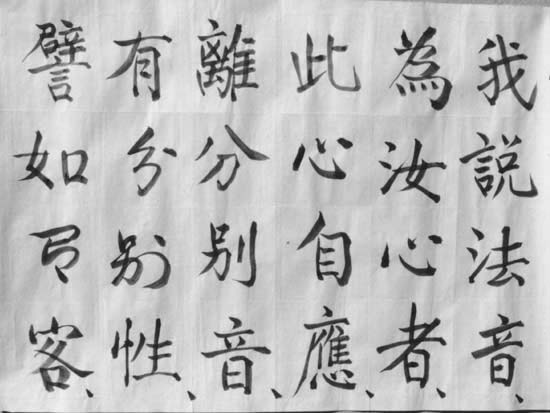 我說法音、
為汝心者、
此心自應、
離分別音、
有分別性、
譬如客、